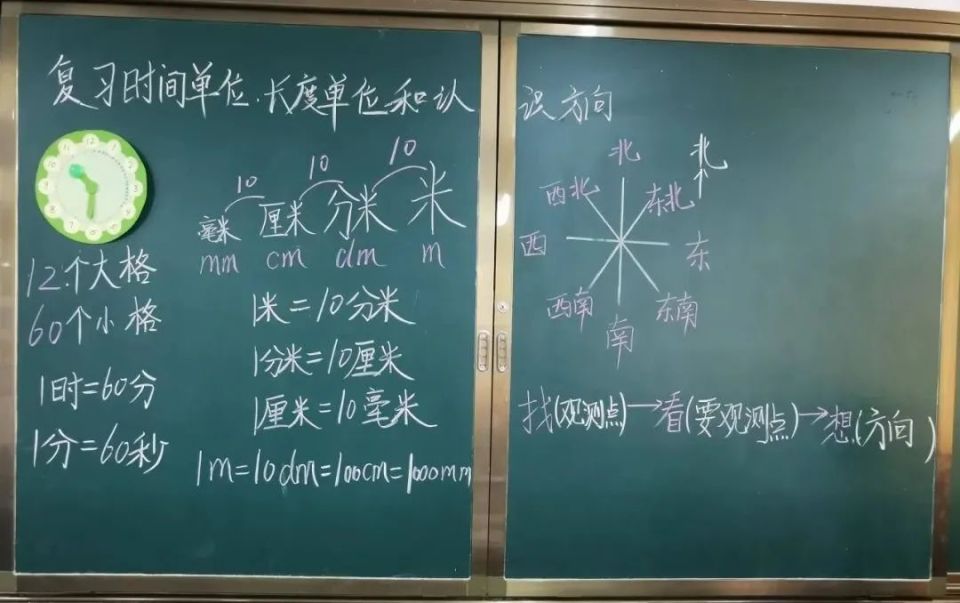 复习时间单位.长度单位和认
识方向
12个大格
60个小格
1时=60分
1分=60秒
10 10 10
毫米 厘米 分米 米
mm cm dm m
1米=10分米
1分米=10厘米
1厘米=10毫米
1m=10dm=100cm=1000mm
北 北
西北 东北
西 东
西南 东南
南
找(观测点)→看(要观测点)→想(方向)